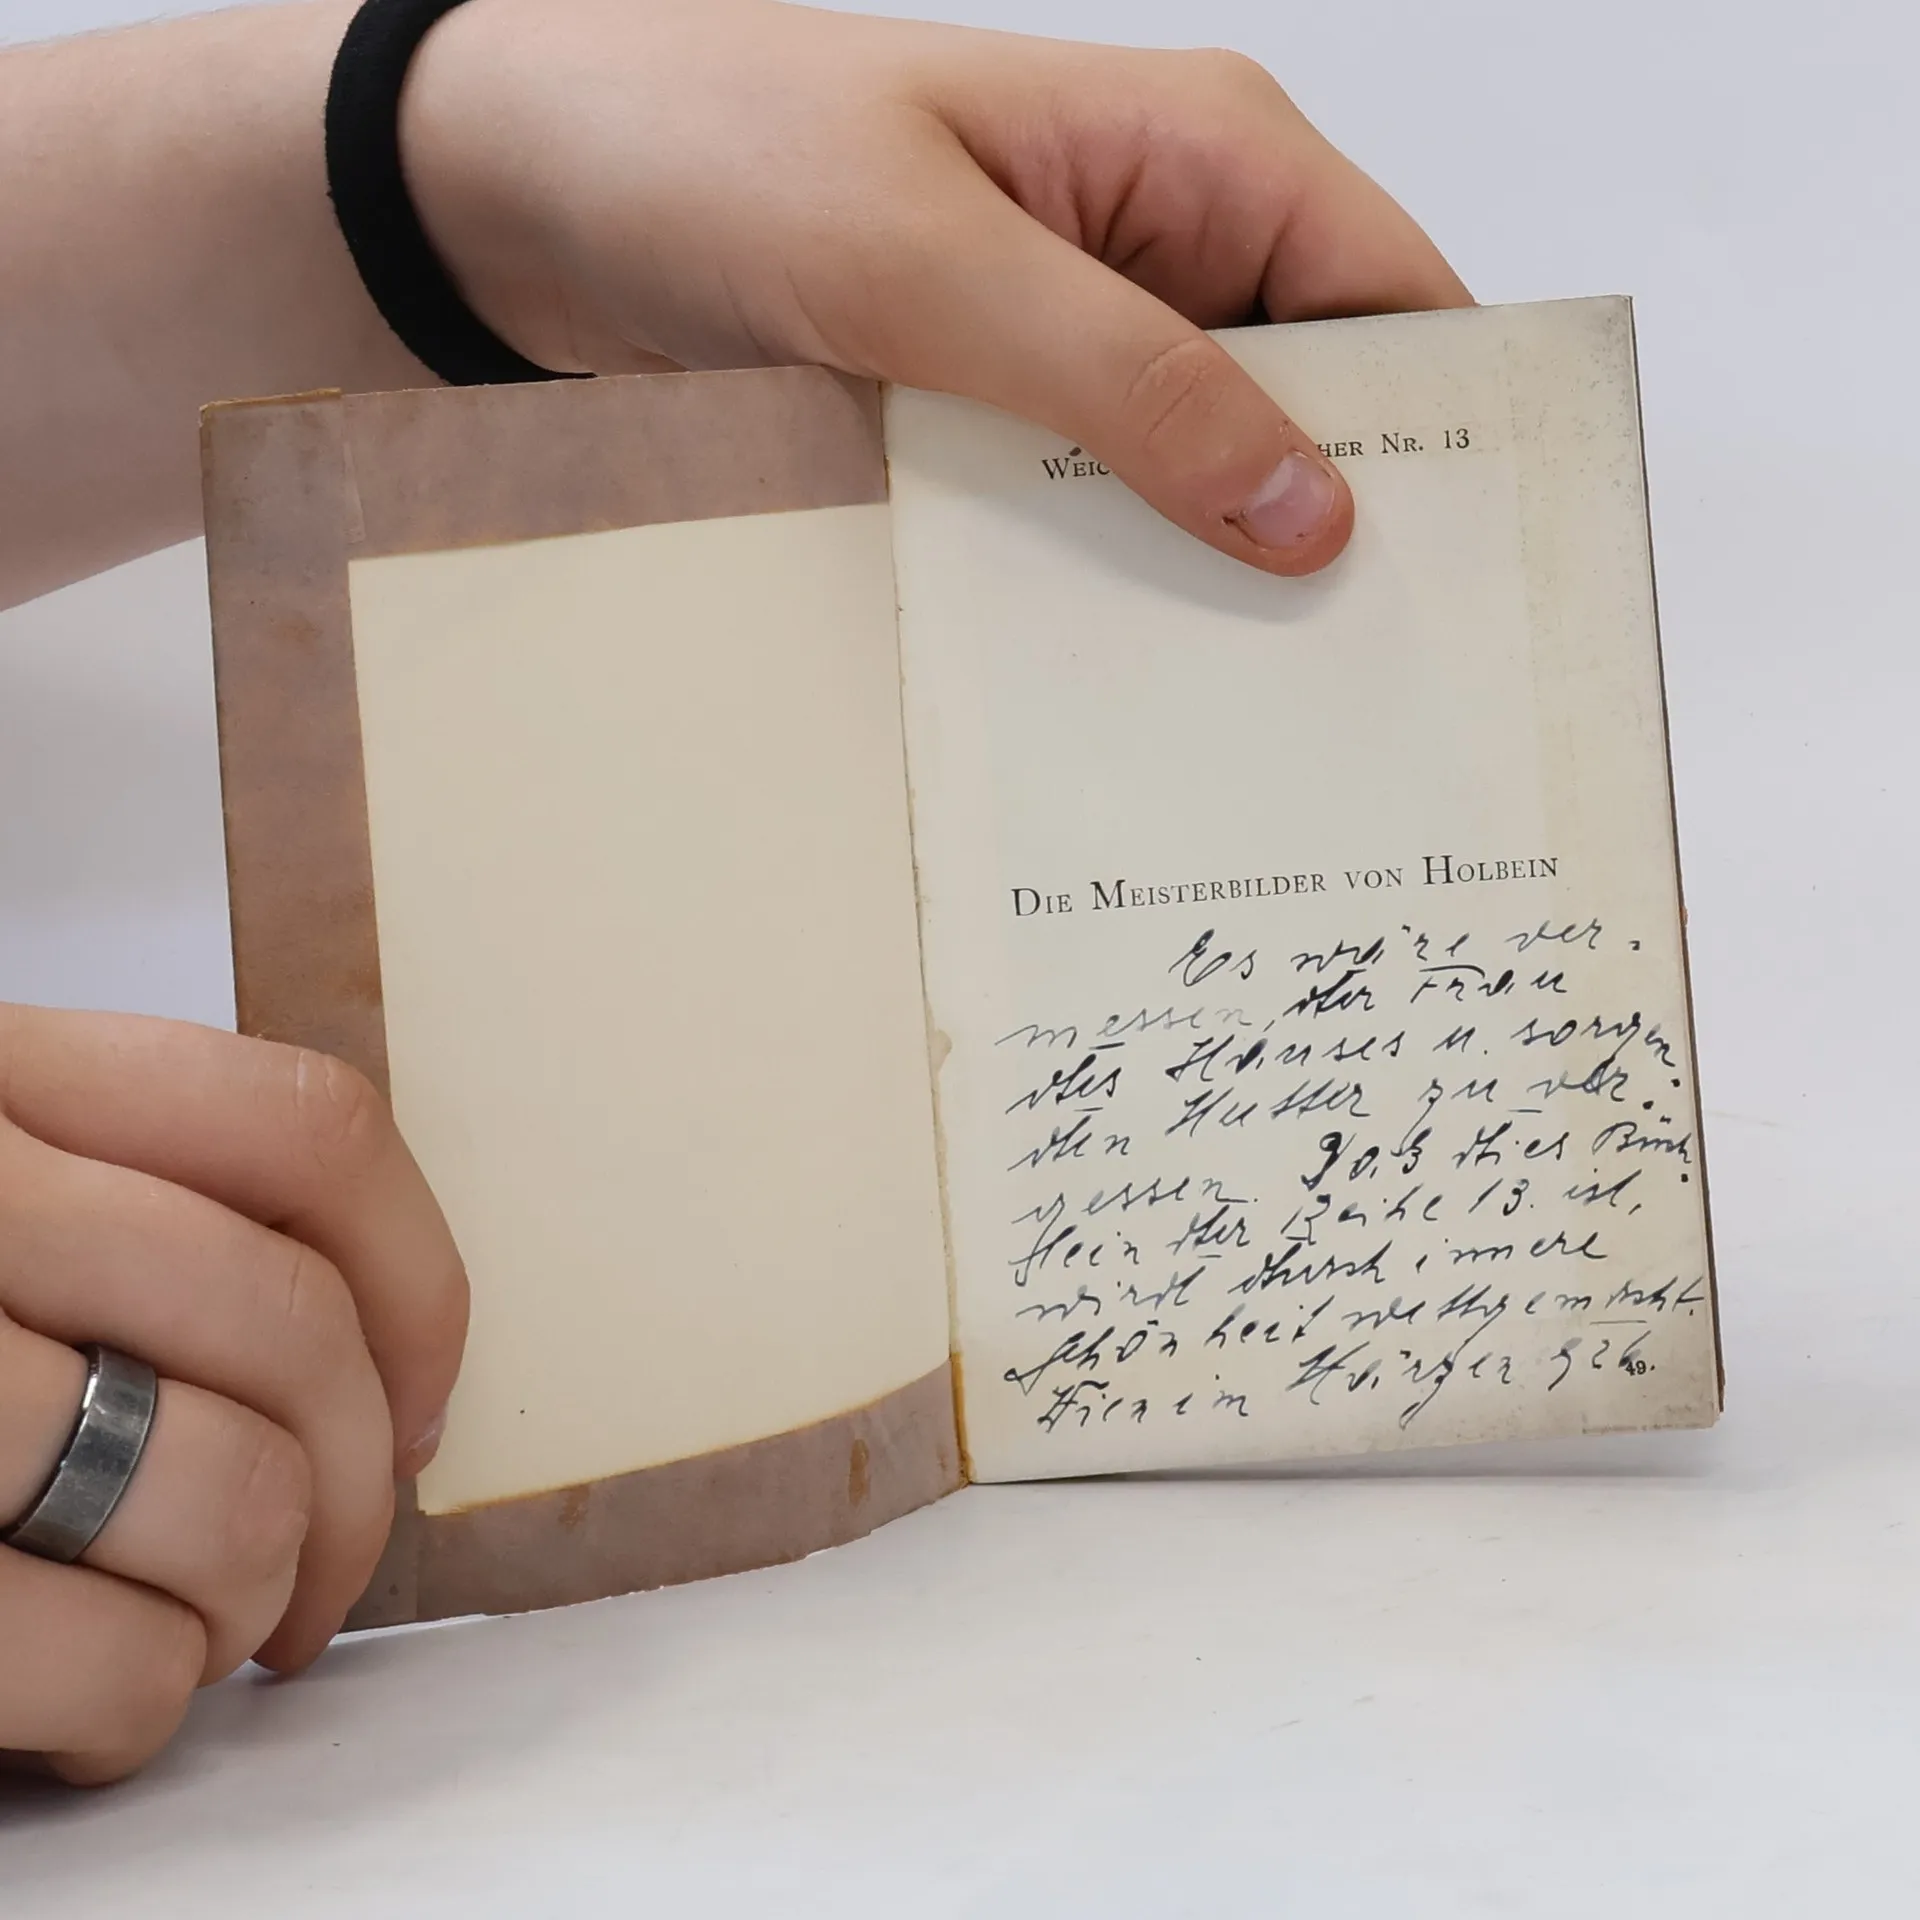 Weic her Nr. 13
Die Meisterbilder von Holbein
Es wäre ver-
messen, der Frau
des Hauses u. sorgen-
den Mutter zu ver-
gessen. Daß dies Büch-
lein der Reihe 13. ist,
wird durch innere
Schönheit wettgemacht.
im März 926
49.